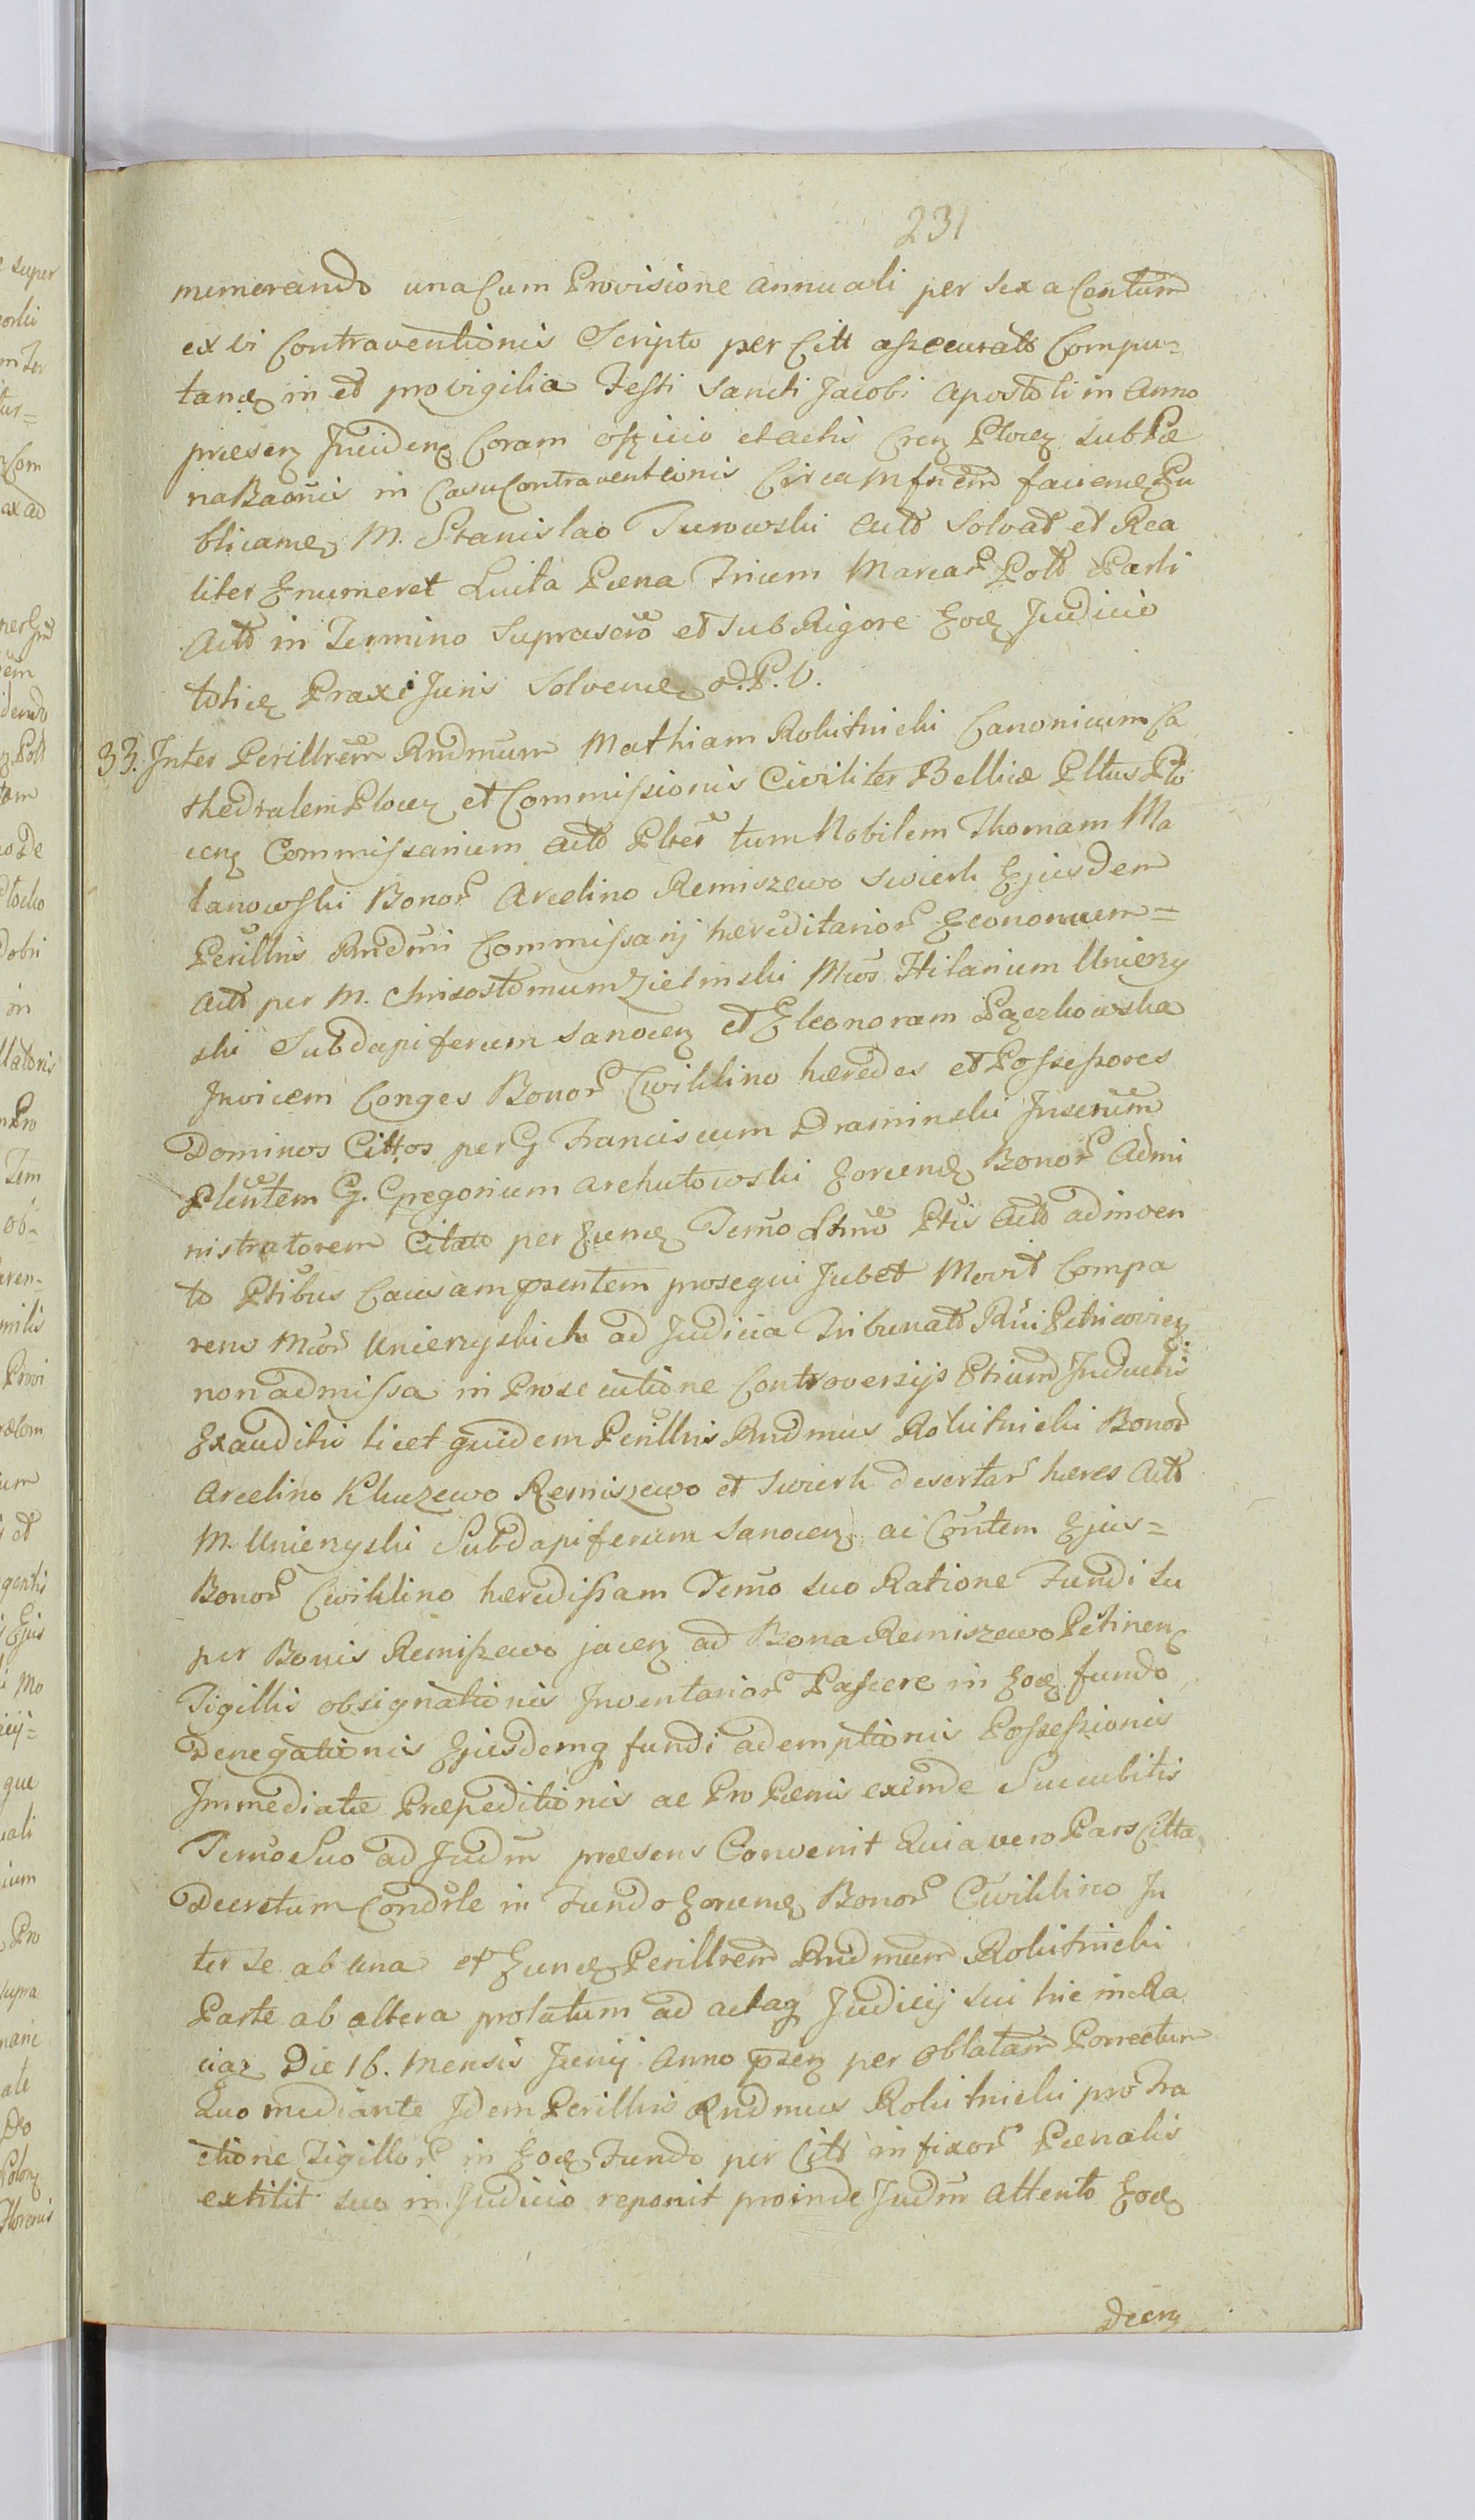 231
numerando una Cum Provisione annuali per sex a Centum
ex vi Contraventionis Scripto per Citt assecurato Compu=
tanḍ in et pro vigilia Festi Sancti Jacobi Apostoli in Anno
praesenz Incidenz Coram officio et actis Crenz Plocenz sub Pæ
na Bannis in Casu Contraventionis Circa Mfnem faciendæ Pu
blicandæ M. Stanislao Turowski Acto Solvat et Rea
liter Enumeret Luita Pæna Trium Marcar Poll Parti
Acto in Termino Suprascrõ et Sub Rigore Eodẽ Judicio
totiez Praxi Juris Solvendæ D.P.V.
33. Inter Perillrem Rndmum Mathiam Rokitnicki Canonicum Ca
thedralem Plocenz et Commissionis Civiliter Bellicæ Pltus Plo
cenz Commissarium Acto Pltes tum Nobilem Thomam Ma
lanowski Bonor Arcelino Remiszewo Swierk Ejusdem
Perillris Rndmi Commissarij hæreditarior Econonum=
Acto per M. Chrisostomum Zielinski Mcos Hilarium Unierzy
ski Subdapiferum Sanocenz et Eleonoram Pączkowska
Invicem Conges Bonor Cwiklino hæredes et Possessores
Dominos Cittos per G Franciscum Draminski Inserum
Pleutem G. Gregorium Archutowski Eorund Bonor Admi
nistratorem Citato per Eund Termo Ltmo Ptis Acto adinven
to Ptibus Causam psentem prosequi Jubet Movit Compa
rens Mcor Unierzyskich ad Judicia Tribunalt Rni Petricovienz
non admissa in Prosecutione Controversijs Ptium Inductis
Exauditis licet quidem Perillris Rndmus Rokitnicki Bonor
Arcelino Kluzewo Remiszewo et Swierk desertar hæres Acto
M. Unierzyski Subdapiferum Sanocenz ac Contem Ejus=
Bonor Cwiklino hæredissam Termo suo Ratione Fundi Su
per Bonis Remiszewo jacenz ad Bona Remiszewo Pctinenz
Tigillis obsignationis Inventarior Pascere in Eod fundo
Denegationis Ejusdemq fundi ademptionis Possessionis
Immediatæ Præpeditionis ac Pro Pænis exinde Succubitis
Termo Suo ad Judm præsens Convenit Quia vero Pars Citta
Decretum Condrle in Fundo Eorund Bonor Cwiklino In
ter se ab una et Eund Perillrem Rndmum Rokitnicki
Parte ab altera prolatum ad actaq Judicij sui hic in Ra
ciaz Die 16. Mensis Junij Anno psenz per Oblatam Porrectum
Quo mediante Idem Perillris Rndmus Rokitnicki pro Fra
ctione Tigillor in Eod Fundo per Citt infixor Pænalis
extitit suo in Judicio reponit proinde Judm Attento Eod
Decrz